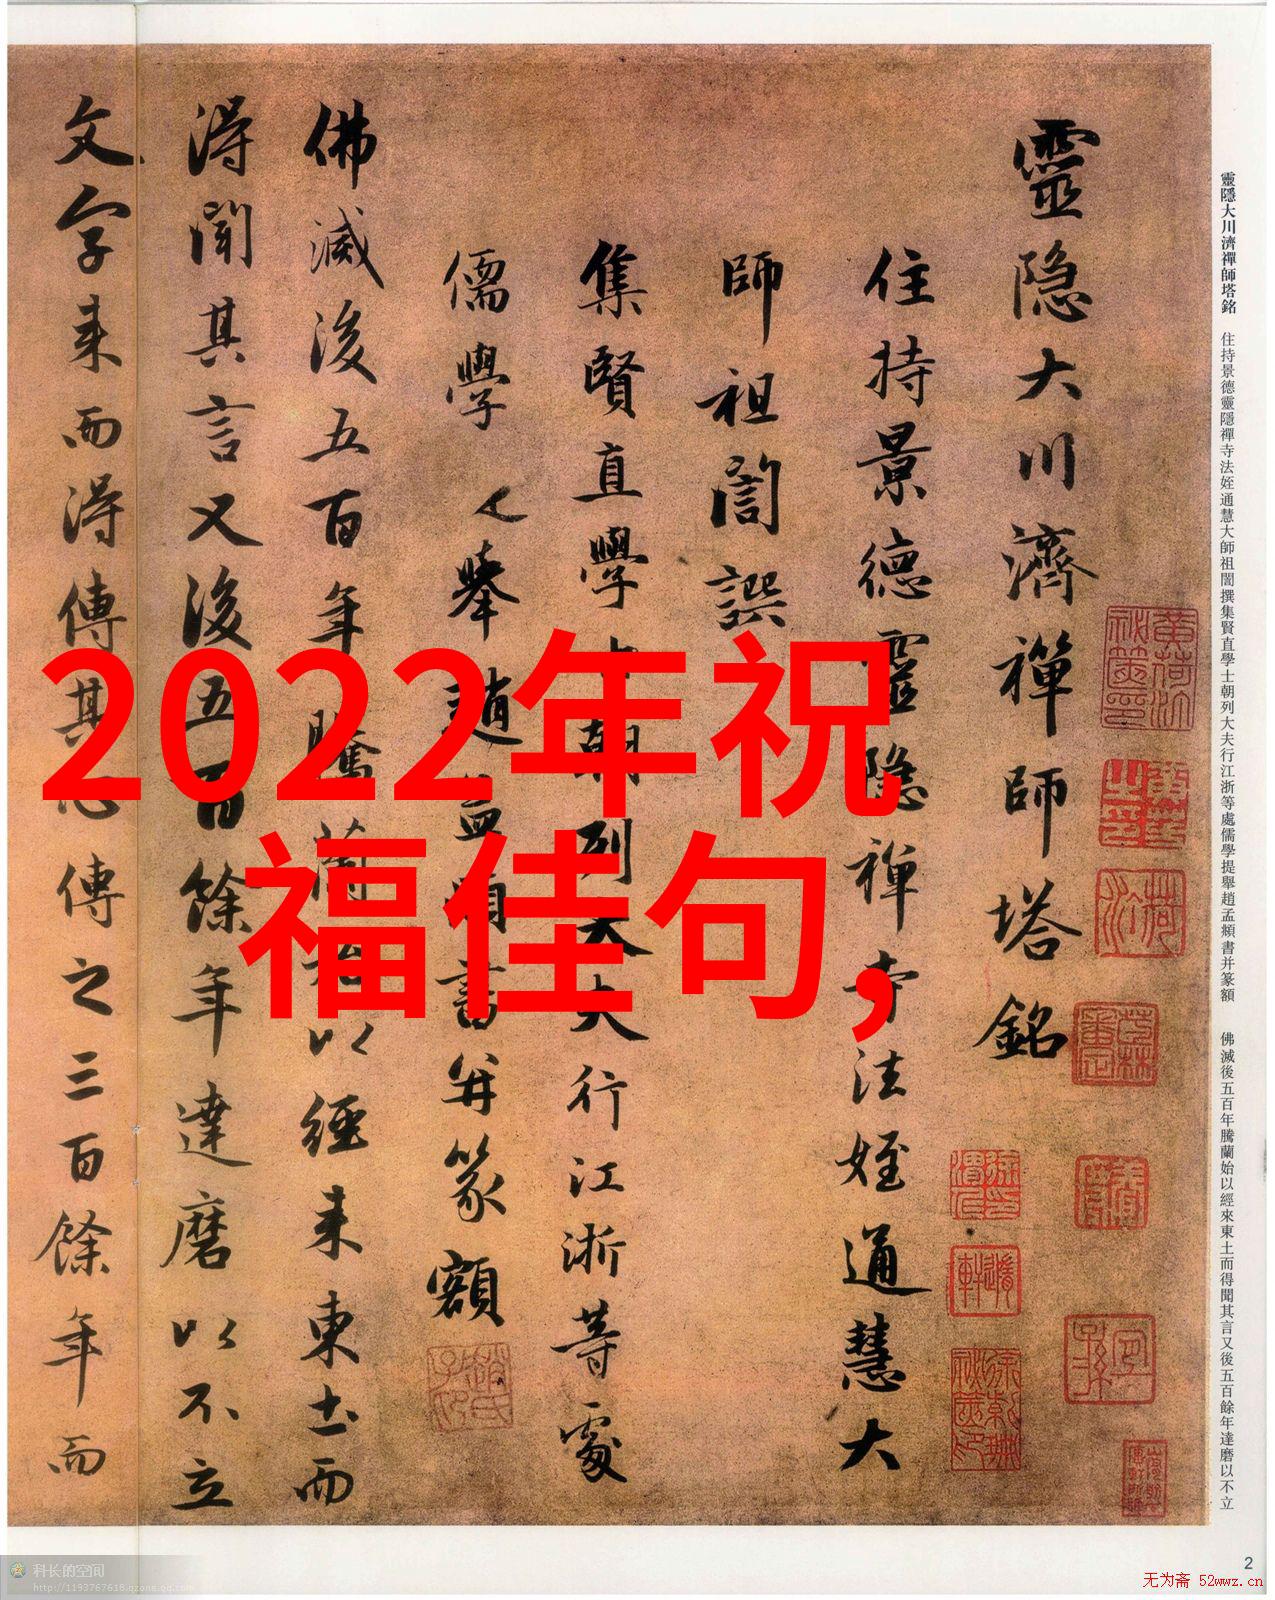 靈隐大川濟禪師塔銘
住持景德靈隐禅寺法姪通慧大
師祖誾譔
集賢直學士朝列大夫行江浙等處
儒學提舉趙孟頫書并篆額
佛滅後五百年騰蘭始以經来東土而
得聞其言又後五百餘年達磨以不立
文字来而得傳其心傳之三百餘年而
2022年祝
福佳句,
靈隱大川濟禪師塔銘 住持景德靈隱禪寺法姪通慧大師祖誾撰集賢直學士朝列大夫行江浙等處儒學提舉趙孟頫書并篆額 佛滅後五百年騰蘭始以經來東土而得聞其言又後五百餘年達磨以不立
2
科长的空间
http://1193767618.qzone.qq.com
无为斋 52wwz.cn